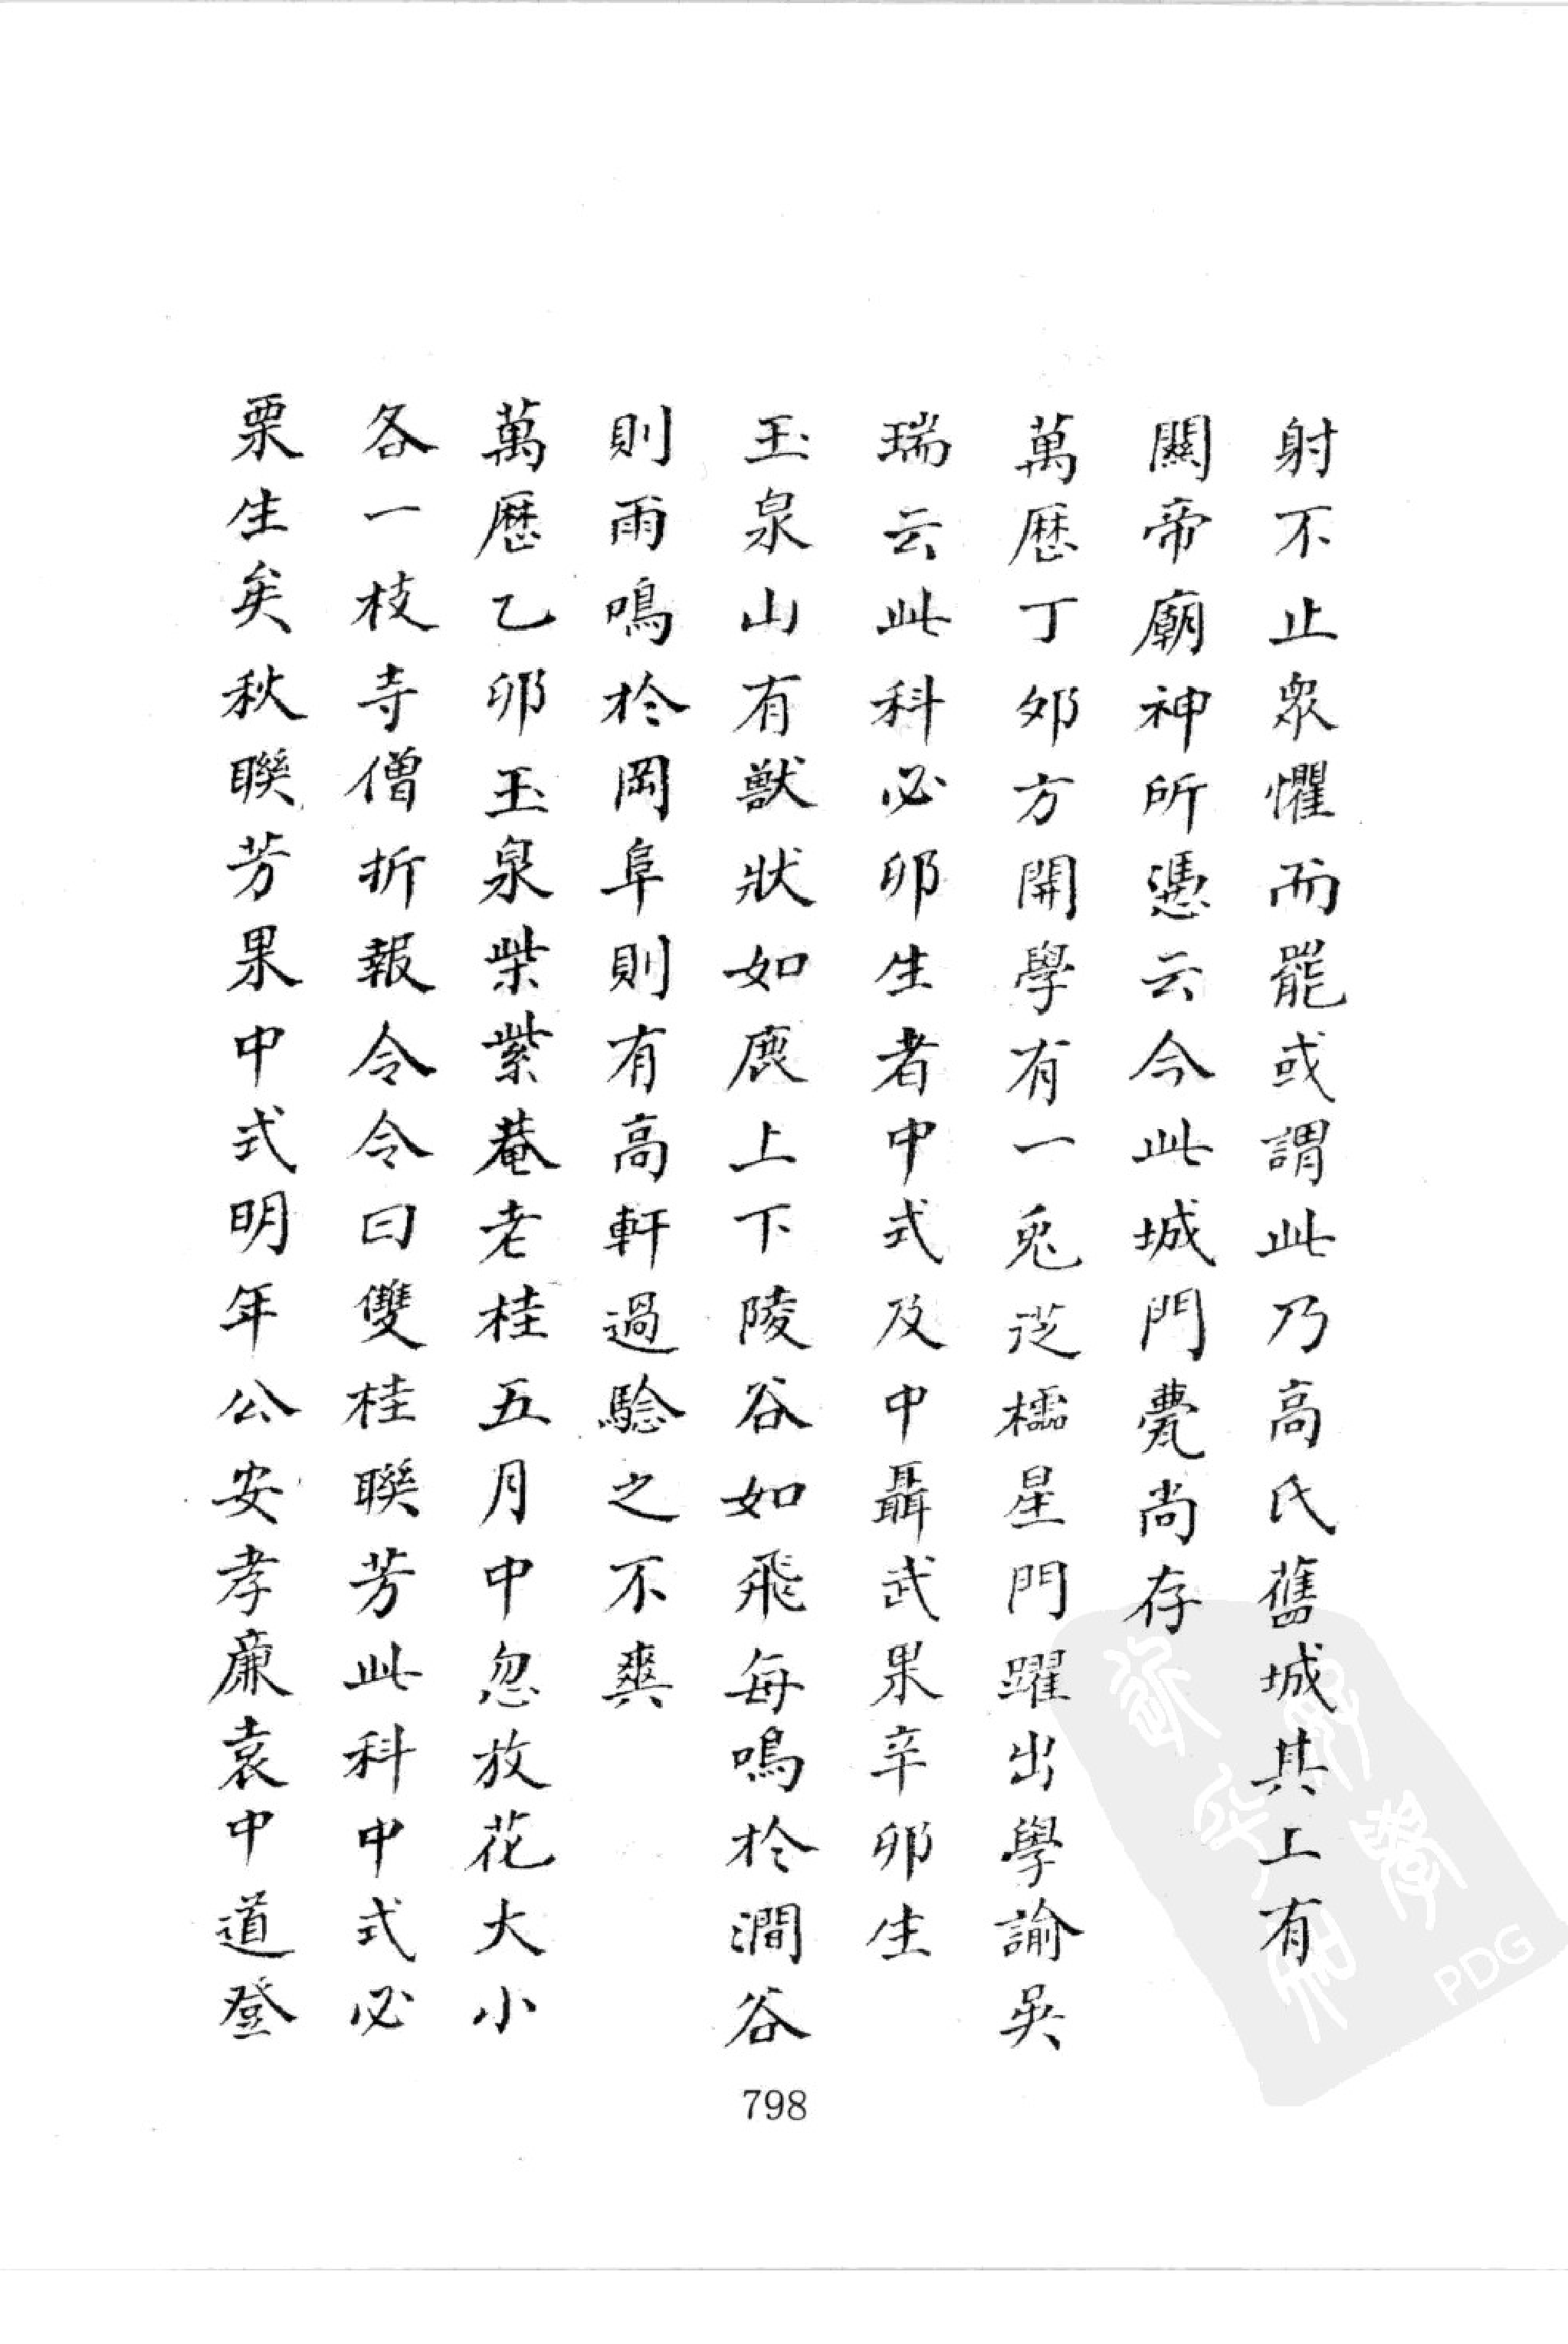 射不止衆懼而罷或謂此乃高氏舊城其上有
關帝廟神所憑云今此城門甍尚存
萬歷丁夘方開學有一兎從櫺星門躍出學諭吳
瑞云此科必卯生者中式及中聶武果辛卯生
玉泉山有獸狀如鹿上下陵谷如飛每鳴於澗谷
則雨鳴於岡阜則有高軒過驗之不爽
萬歷乙卯玉泉柴紫菴老桂五月中忽放花大小
各一枝寺僧折報令令曰雙桂聯芳此科中式必
栗生矣秋聯芳果中式明年公安孝廉袁中道登
798
PDG